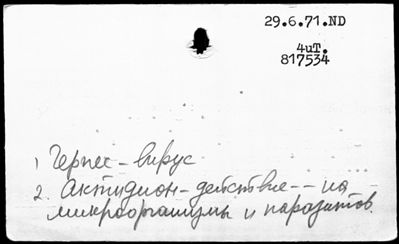 29.6.71.ND
4иТ.
817534
1 Герпес - вирус
2. Актидион - действие -- на
микроорганизмы и паразитов.